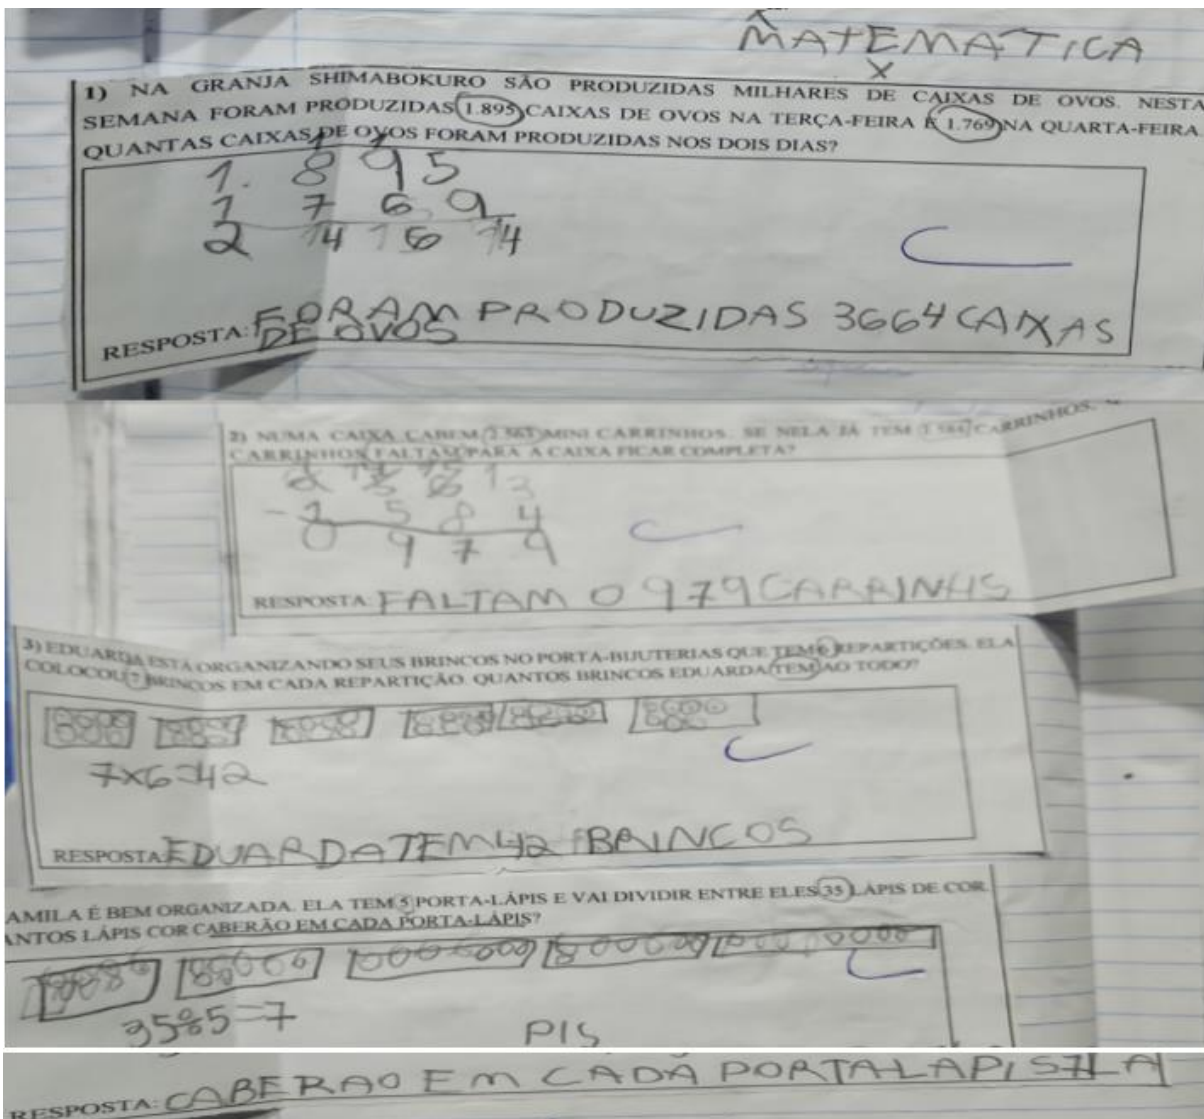 MATEMATICA
X
1) NA GRANJA SHIMABOKURO SÃO PRODUZIDAS MILHARES DE CAIXAS DE OVOS. NESTA
SEMANA FORAM PRODUZIDAS 1.895 CAIXAS DE OVOS NA TERÇA-FEIRA E 1.769 NA QUARTA-FEIRA
QUANTAS CAIXAS DE OVOS FORAM PRODUZIDAS NOS DOIS DIAS?
1. 8 9 5
1 7 6 9
2 14 15 14
RESPOSTA: FORAM PRODUZIDAS 3664 CAIXAS
DE OVOS
2) NUMA CAIXA CABEM 2.563 MINI CARRINHOS. SE NELA JÁ TEM 1.584 CARRINHOS.
CARRINHOS FALTAM PARA A CAIXA FICAR COMPLETA?
- 1 5 8 4
0 9 7 9
RESPOSTA: FALTAM 0979 CARRINHS
3) EDUARDA ESTÁ ORGANIZANDO SEUS BRINCOS NO PORTA-BIJUTERIAS QUE TEM 6 REPARTIÇÕES. ELA
COLOCOU 7 BRINCOS EM CADA REPARTIÇÃO. QUANTOS BRINCOS EDUARDA TEM AO TODO?
7X6=42
RESPOSTA: EDUARDA TEM 42 BRINCOS
AMILA É BEM ORGANIZADA. ELA TEM 5 PORTA-LÁPIS E VAI DIVIDIR ENTRE ELES 35 LÁPIS DE COR
ANTOS LÁPIS COR CABERÃO EM CADA PORTA-LÁPIS?
35÷5=7
PIS
RESPOSTA: CABERAO EM CADA PORTA-LAPIS 7 LA